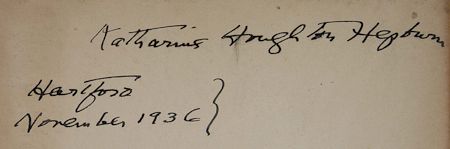 Katharine Houghton Hepburn
Hartford
November 1936 }